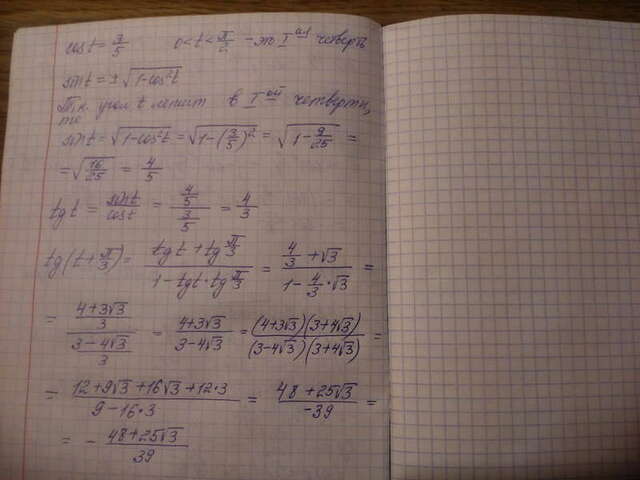 cos t = 3/5   0 < t < π/2 - это I ая четверть
sin t = ± √(1-cos²t)
Т.к. угол t лежит в I ой четверти,
то
sin t = √(1-cos²t) = √(1-(3/5)²) = √(1-9/25) =
= √(16/25) = 4/5
tg t = sin t/cos t = (4/5)/(3/5) = 4/3
tg(t+π/3) = (tg t + tg π/3)/(1 - tg t · tg π/3) = (4/3 + √3)/(1 - 4/3 · √3) =
= ((4+3√3)/3)/((3-4√3)/3) = (4+3√3)/(3-4√3) = (4+3√3)(3+4√3)/(3-4√3)(3+4√3) =
= (12+9√3+16√3+12·3)/(9-16·3) = (48+25√3)/(-39) =
= - (48+25√3)/39